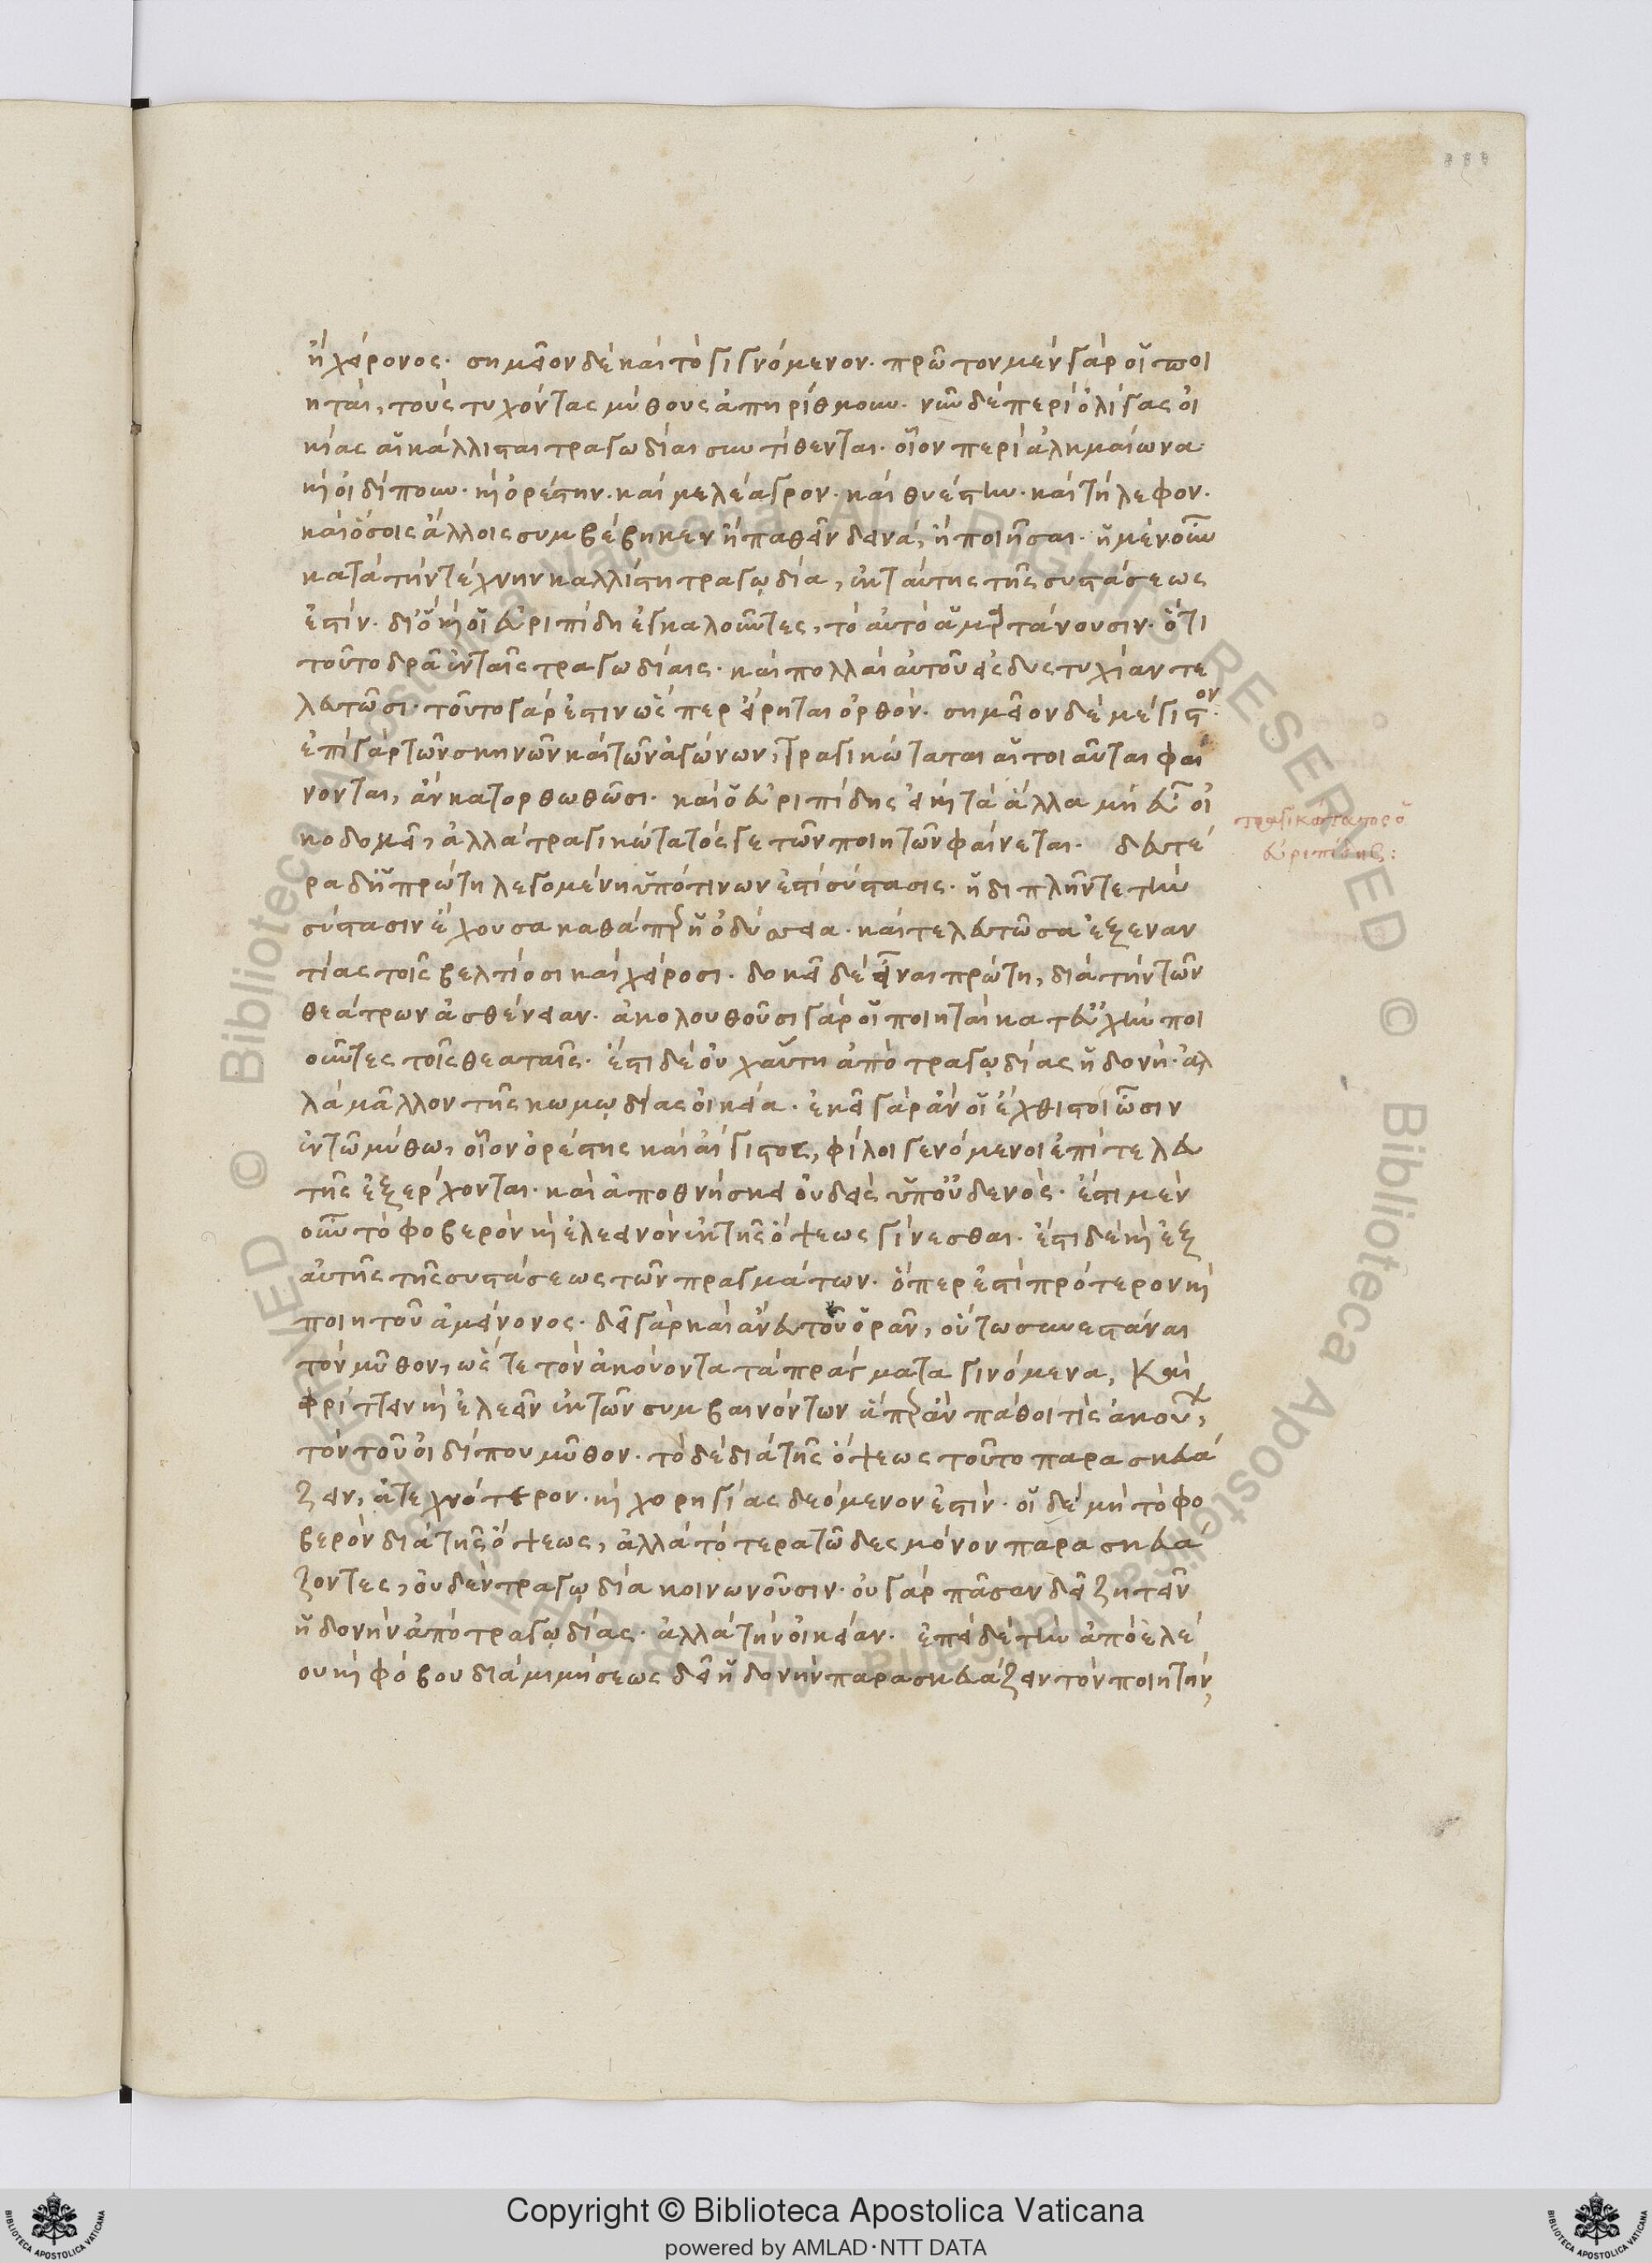 ἢ χείρονος· σημεῖον δὲ καὶ τὸ γιγνόμενον· πρῶτον μὲν γὰρ οἱ ποι
ηταὶ, τοὺς τυχόντας μύθους ἀπηρίθμουν· νῦν δὲ περὶ ὀλίγας οἰ
κίας αἱ κάλλισται τραγωδίαι συντίθενται· οἷον περὶ ἀλκμαίωνα
καὶ οἰδίπουν· καὶ ὀρέστην· καὶ μελέαγρον· καὶ θυέστην· καὶ τήλεφον·
καὶ ὅσοις ἄλλοις συμβέβηκεν ἢ παθεῖν δεινὰ, ἢ ποιῆσαι· ἡ μὲν οὖν
κατὰ τὴν τέχνην καλλίστη τραγῳδία, ἐκ ταύτης τῆς συστάσεως
ἐστίν· διὸ καὶ οἱ εὐριπίδη ἐγκαλοῦντες, τὸ αὐτὸ ἁμαρτάνουσιν· ὅτι
τοῦτο δρᾶ ἐν ταῖς τραγωδίαις· καὶ πολλαὶ αὐτοῦ εἰς δυστυχίαν τε
λευτῶσι· τοῦτο γάρ ἐστιν ὥσπερ εἴρηται ὀρθόν· σημεῖον δὲ μέγιστον·
ἐπὶ γὰρ τῶν σκηνῶν καὶ τῶν ἀγώνων, τραγικώταται αἱ τοιαῦται φαί
νονται, ἂν κατορθωθῶσι· καὶ ὁ εὐριπίδης εἰ καὶ τὰ ἄλλα μὴ εὖ οἰ
κοδομεῖ, ἀλλὰ τραγικώτατός γε τῶν ποιητῶν φαίνεται· δευτέ
ρα δ' ἡ πρώτη λεγομένη ὑπό τινων ἐστὶ σύστασις· ἡ διπλῆν τε τὴν
σύστασιν ἔχουσα καθάπερ ἡ ὀδύσσεια· καὶ τελευτῶσα ἐξ ἐναν
τίας τοῖς βελτίοσι καὶ χείροσι· δοκεῖ δὲ εἶναι πρώτη, διὰ τὴν τῶν
θεάτρων ἀσθένειαν· ἀκολουθοῦσι γὰρ οἱ ποιηταὶ κατ' εὐχὴν ποι
οῦντες τοῖς θεαταῖς· ἔστι δὲ οὐχ αὕτη ἀπὸ τραγῳδίας ἡδονή· ἀλ
λὰ μᾶλλον τῆς κωμῳδίας οἰκεία· ἐκεῖ γὰρ ἂν οἱ ἔχθιστοι ὦσιν
ἐν τῷ μύθω, οἷον ὀρέστης καὶ αἴγιστος, φίλοι γενόμενοι ἐπὶ τελευ
τῆς ἐξέρχονται· καὶ ἀποθνήσκει οὐδεὶς ὑπ' οὐδενός· ἔστι μὲν
οὖν τὸ φοβερὸν καὶ ἐλεεινὸν ἐκ τῆς ὄψεως γίνεσθαι· ἔστι δὲ καὶ ἐξ
αὐτῆς τῆς συστάσεως τῶν πραγμάτων· ὅπερ ἐστὶ πρότερον καὶ
ποιητοῦ ἀμείνονος· δεῖ γὰρ καὶ ἄνευ τοῦ ὁρᾶν, οὕτω συνεστάναι
τὸν μῦθον, ὥστε τὸν ἀκούοντα τὰ πράγματα γινόμενα, καὶ
φρίττειν καὶ ἐλεεῖν ἐκ τῶν συμβαινόντων ἅπερ ἂν πάθοι τὶς ἀκούων,
τὸν τοῦ οἰδίπου μῦθον· τὸ δὲ διὰ τῆς ὄψεως τοῦτο παρασκευά
ζειν, ἀτεχνότερον· καὶ χορηγίας δεόμενον ἐστίν· οἱ δὲ μὴ τὸ φο
βερὸν διὰ τῆς ὄψεως, ἀλλὰ τὸ τερατῶδες μόνον παρασκευά
ζοντες, οὐδὲν τραγῳδία κοινωνοῦσιν· οὐ γὰρ πᾶσαν δεῖ ζητεῖν
ἡδονὴν ἀπὸ τραγῳδίας· ἀλλὰ τὴν οἰκείαν· ἐπεὶ δὲ τὴν ἀπὸ ἐλέ
ου καὶ φόβου διὰ μιμήσεως δεῖ ἡδονὴν παρασκευάζειν τὸν ποιητὴν,
τραγικώτατος ὁ
εὐριπίδης:
Copyright © Biblioteca Apostolica Vaticana
powered by AMLAD·NTT DATA